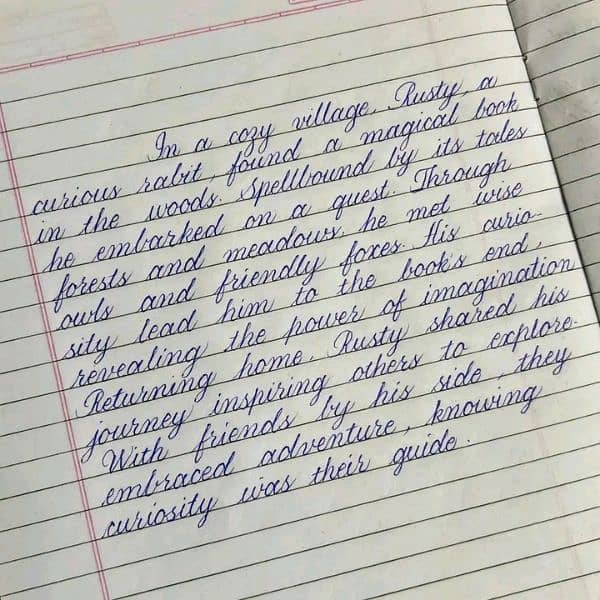 In a cozy village, Rusty, a
curious rabit, found a magical book
in the woods. Spellbound by its tales
he embarked on a quest. Through
forests and meadows, he met wise
owls and friendly foxes. His curio-
sity lead him to the book's end,
revealing the power of imagination
Returning home, Rusty shared his
journey inspiring others to explore.
With friends by his side, they
embraced adventure, knowing
curiosity was their guide.